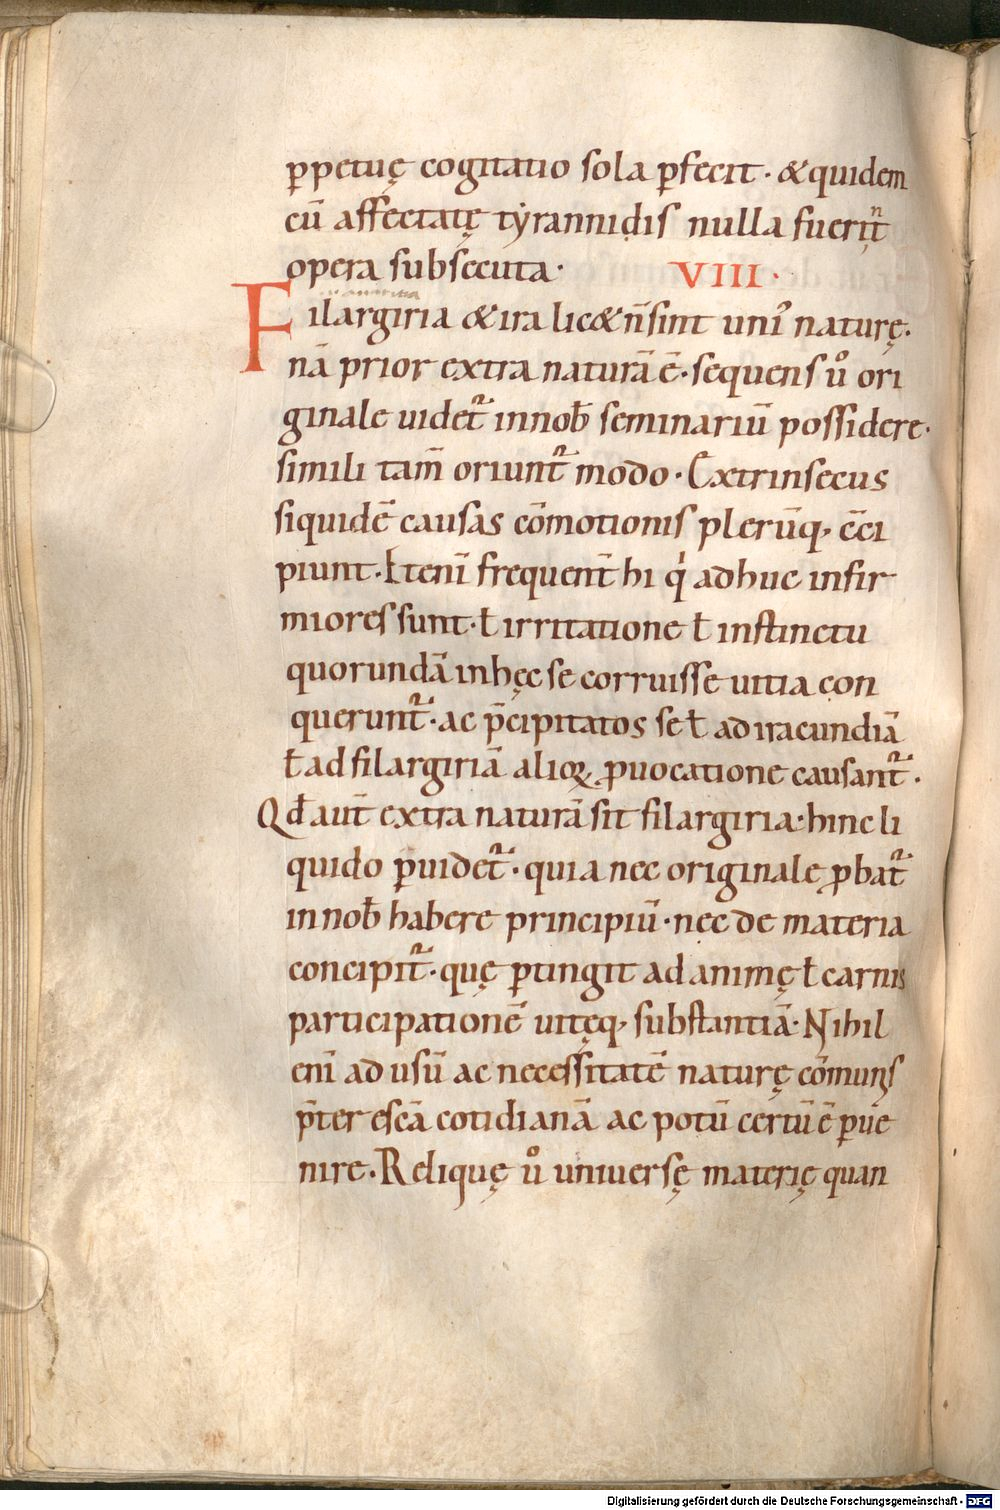 p̄petuę cogitatio sola p̄fecit · & quidem
cū affectatę tẏrannidis nulla fuerint̄
opera subsecuta · VIII ·
Filargiria & ira lic& n̄ sint uni᷒ naturę ·
nā prior extra naturā ē · sequens u̾ ori
ginale uidet᷑ in nob̄ seminariū possidere ·
simili tam̄ oriunt᷑ modo · Extrinsecus
siquidē causas cōmotionis plerūq, c̄ci
piunt · Etenī frequent̄ hi q̇ adhuc infir
miores sunt · ł irritatione ł instinctu
quorundā in hęc se corruisse uitia con
querunt᷑ · ac p̄cipitatos se ł ad iracundiā
ł ad filargiriā alioꝝ ꝓuocatione causant᷑ ·
Qd̄ aut̄ extra naturā sit filargiria · hinc li
quido p̄uidet᷑ · quia nec originale ꝓbat᷑
in nob̄ habere principiū · nec de materia
concipit᷑ · quę p̄tingit ad animę ł carnis
participationē uitęq, substantiā · Nihil
enī ad usū ac necessitatē naturę cōmunis
p̄ter escā cotidianā ac potū certū ē p̄ue
nire · Reliquę u̾ universę materię quan
Digitalisierung gefördert durch die Deutsche Forschungsgemeinschaft - DFG